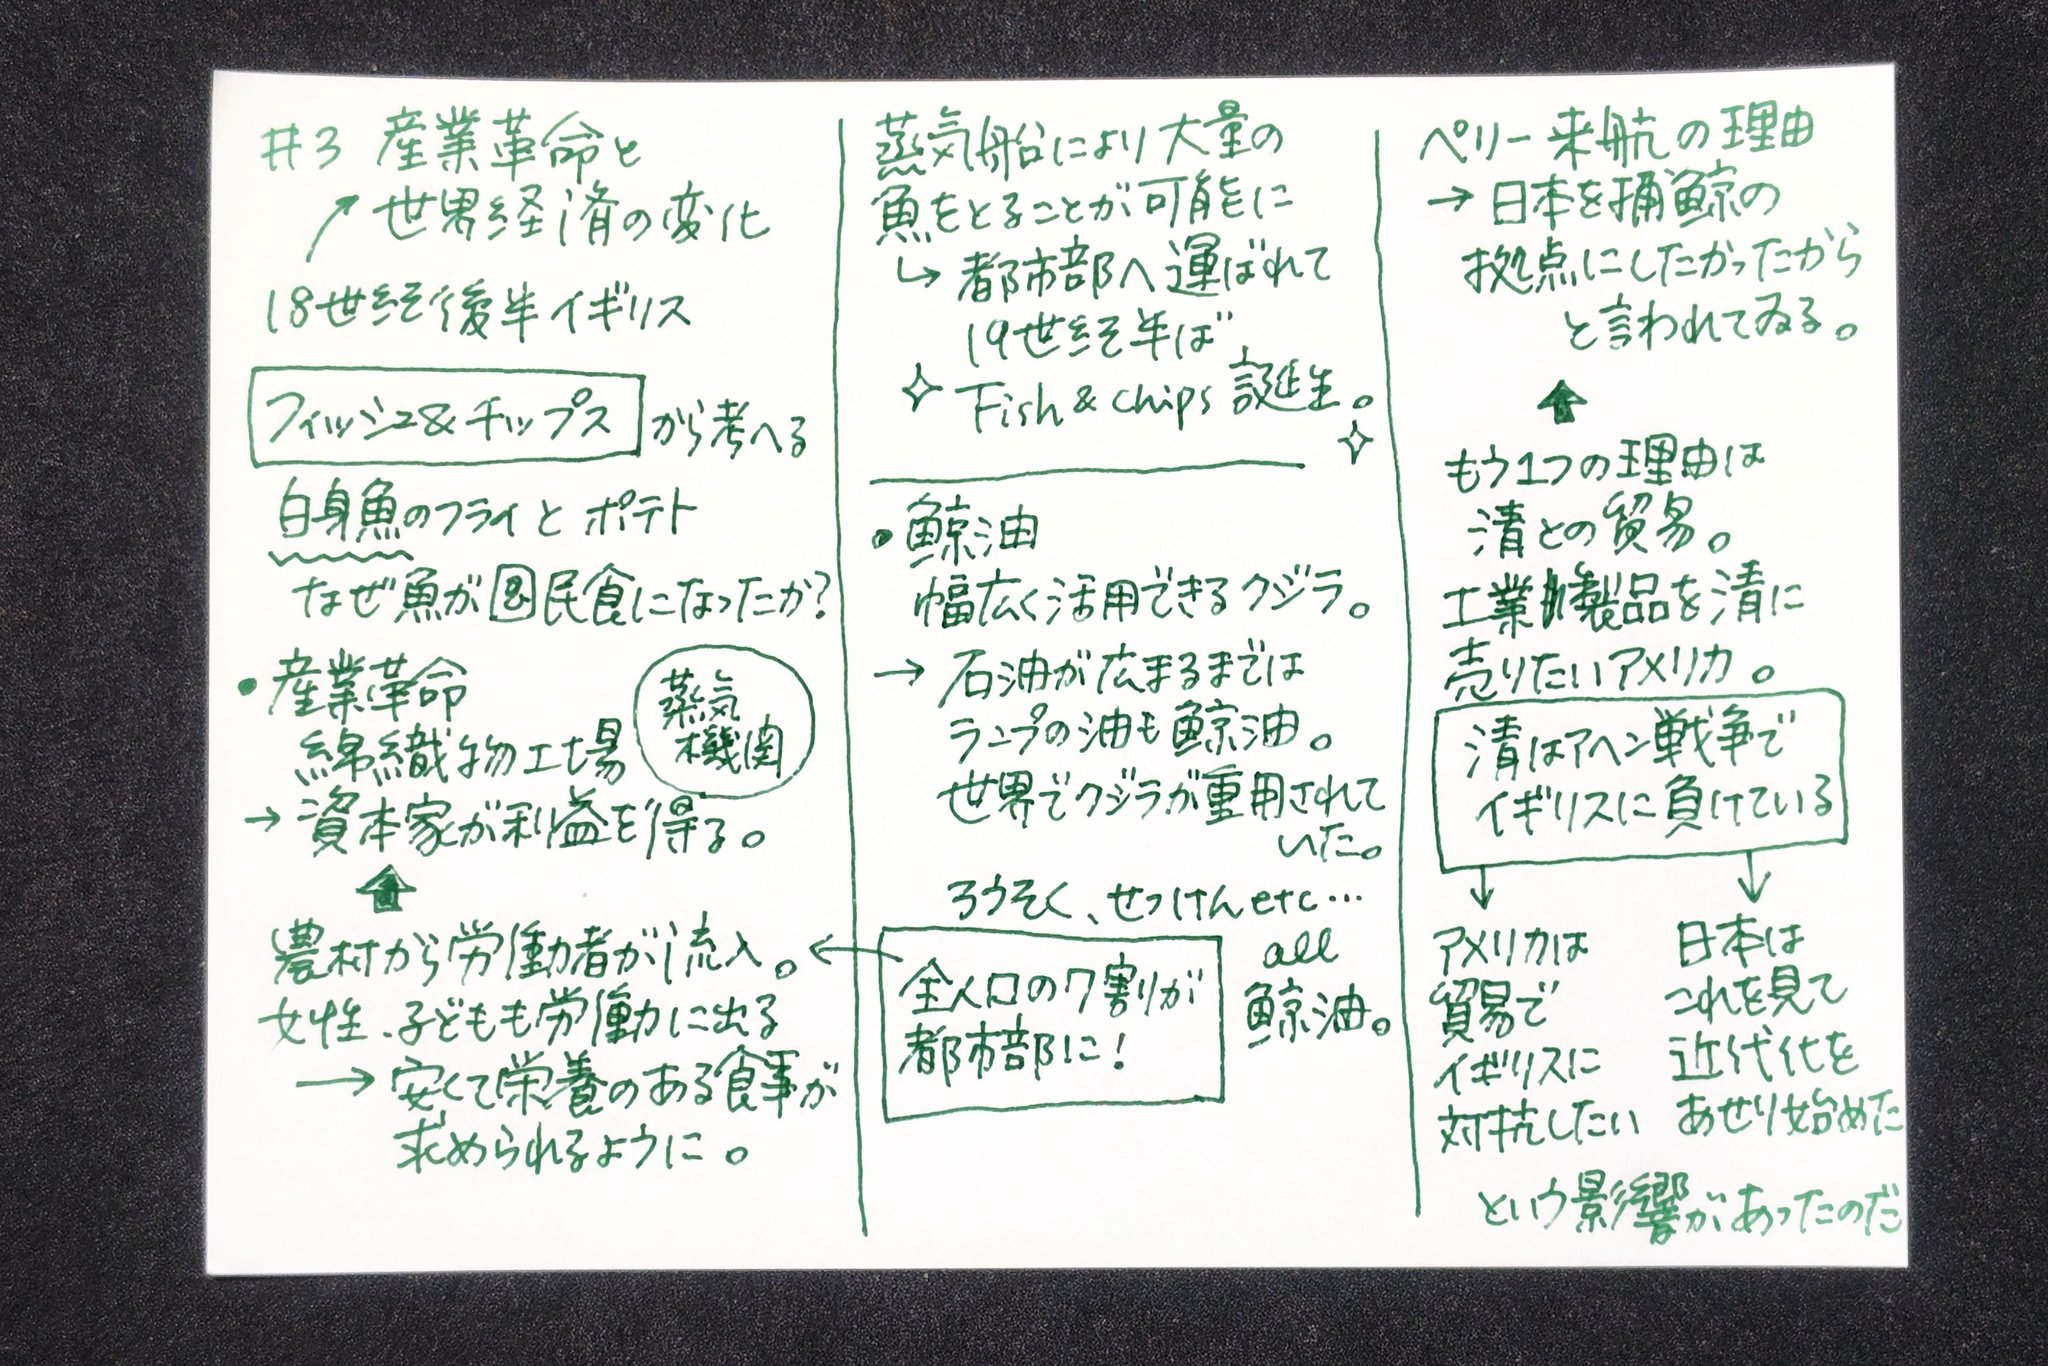 #3 産業革命と
↗ 世界経済の変化
18世紀後半イギリス
フィッシュ&チップス から考へる
白身魚のフライと ポテト
なぜ魚が国民食になったか?
• 産業革命
蒸気
機関
綿織物工場
→ 資本家が利益を得る。
⬆
農村から労働者が流入。
女性、子どもも労働に出る
→ 安くて栄養のある食事が
求められるように。
蒸気船により大量の
魚をとることが可能に
↳ 都市部へ運ばれて
19世紀半ば
✧ Fish & chips 誕生。
✧
• 鯨油
幅広く活用できるクジラ。
→ 石油が広まるまでは
ランプの油も鯨油。
世界でクジラが重用されて
いた。
ろうそく、せっけん etc…
all
鯨油。
← 全人口の7割が
都市部に!
ペリー来航の理由
→ 日本を捕鯨の
拠点にしたかったから
と言われてゐる。
⬆
もう1つの理由は
清との貿易。
工業製品を清に
売りたいアメリカ。
清はアヘン戦争で
イギリスに負けている
↓ ↓
アメリカは
貿易で
イギリスに
対抗したい
日本は
これを見て
近代化を
あせり始めた
という影響があったのだ